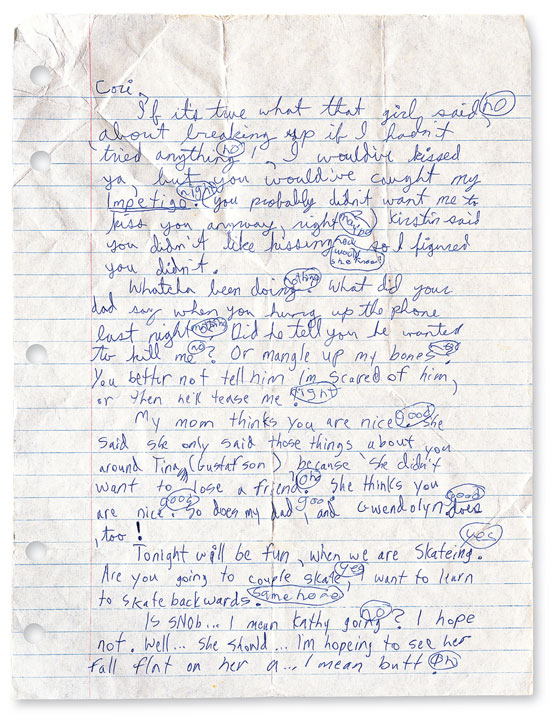 Cori,
If it's true what that girl said no
about breaking up if I hadn't
tried anything no, I would've kissed
ya, but you would've caught my
Impetigo. right you probably didn't want me to
kiss you anyway, right maybe Kirstin said
you didn't like kissing how would she know? so I figured
you didn't.
Whatcha been doing nothing? What did your
dad say when you hung up the phone
last night nothing? Did he tell you he wanted
to kill me no? Or mangle up my bones. no
You better not tell him I'm scared of him,
or then he'll tease me. right
My mom thinks you are nice good. She
said she only said those things about you
around Tina (Gustafson) because she didn't
want to lose a friend. oh She thinks you
are nice. good So does my dad, good and Gwendolyn does good
, too!
Tonight will be fun, when we are Skateing. yes
Are you going to couple skate yes, I want to learn
to skate backwards. same here
Is SNOb... I mean Kathy going no? I hope
not. Well... she should... I'm hopeing to see her
fall flat on her a... I mean butt.